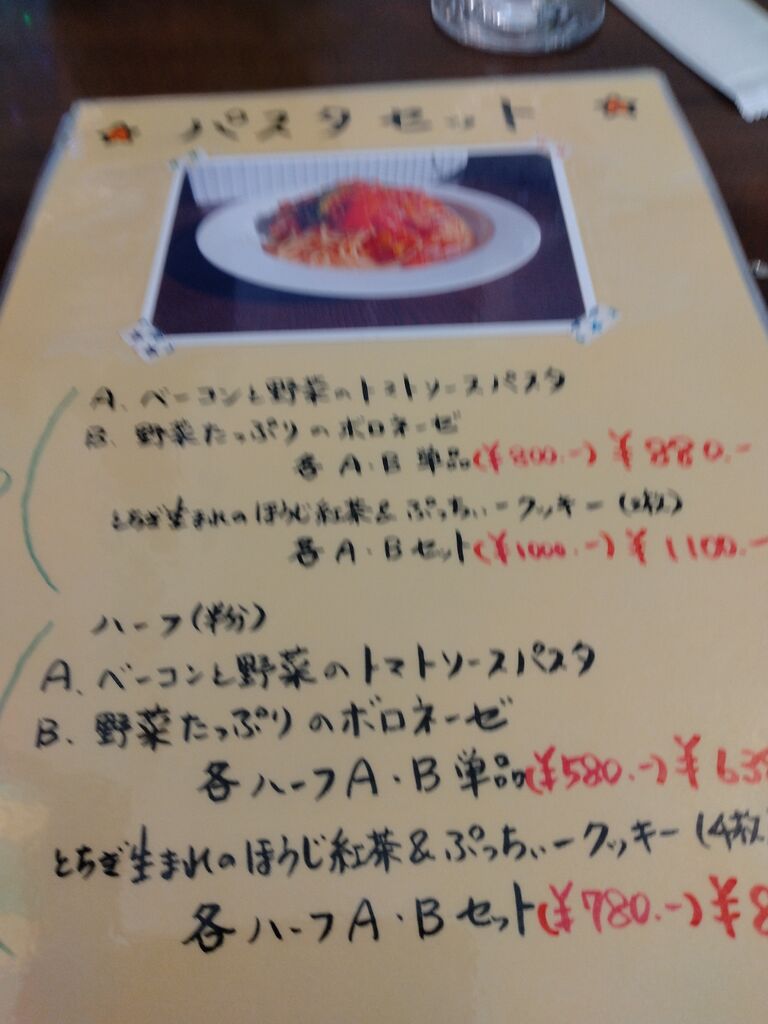 パスタセット
A. ベーコンと野菜のトマトソースパスタ
B. 野菜たっぷりのボロネーゼ
各 A・B 単品(¥800.-) ¥880.-
とちぎ生まれのほうじ紅茶&ぷっちぃークッキー
各 A・B セット(¥1000.-) ¥1100.-
ハーフ(半分)
A. ベーコンと野菜のトマトソースパスタ
B. 野菜たっぷりのボロネーゼ
各ハーフ A・B 単品(¥580.-) ¥638
とちぎ生まれのほうじ紅茶&ぷっちぃークッキー(4枚
各ハーフ A・B セット(¥780.-) ¥8